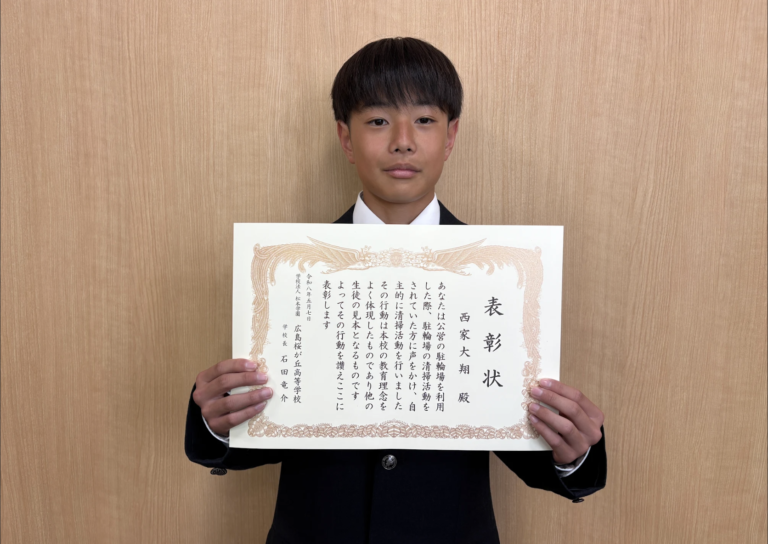 表彰状
西家大翔 殿
あなたは公営の駐輪場を利用
した際、駐輪場の清掃活動を
されていた方に声をかけ、自
主的に清掃活動を行いました
その行動は本校の教育理念を
よく体現したものであり他の
生徒の見本となるものです
よってその行動を讃えここに
表彰します
令和八年五月七日
学校法人 松本学園
広島桜が丘高等学校
学校長 石田竜介